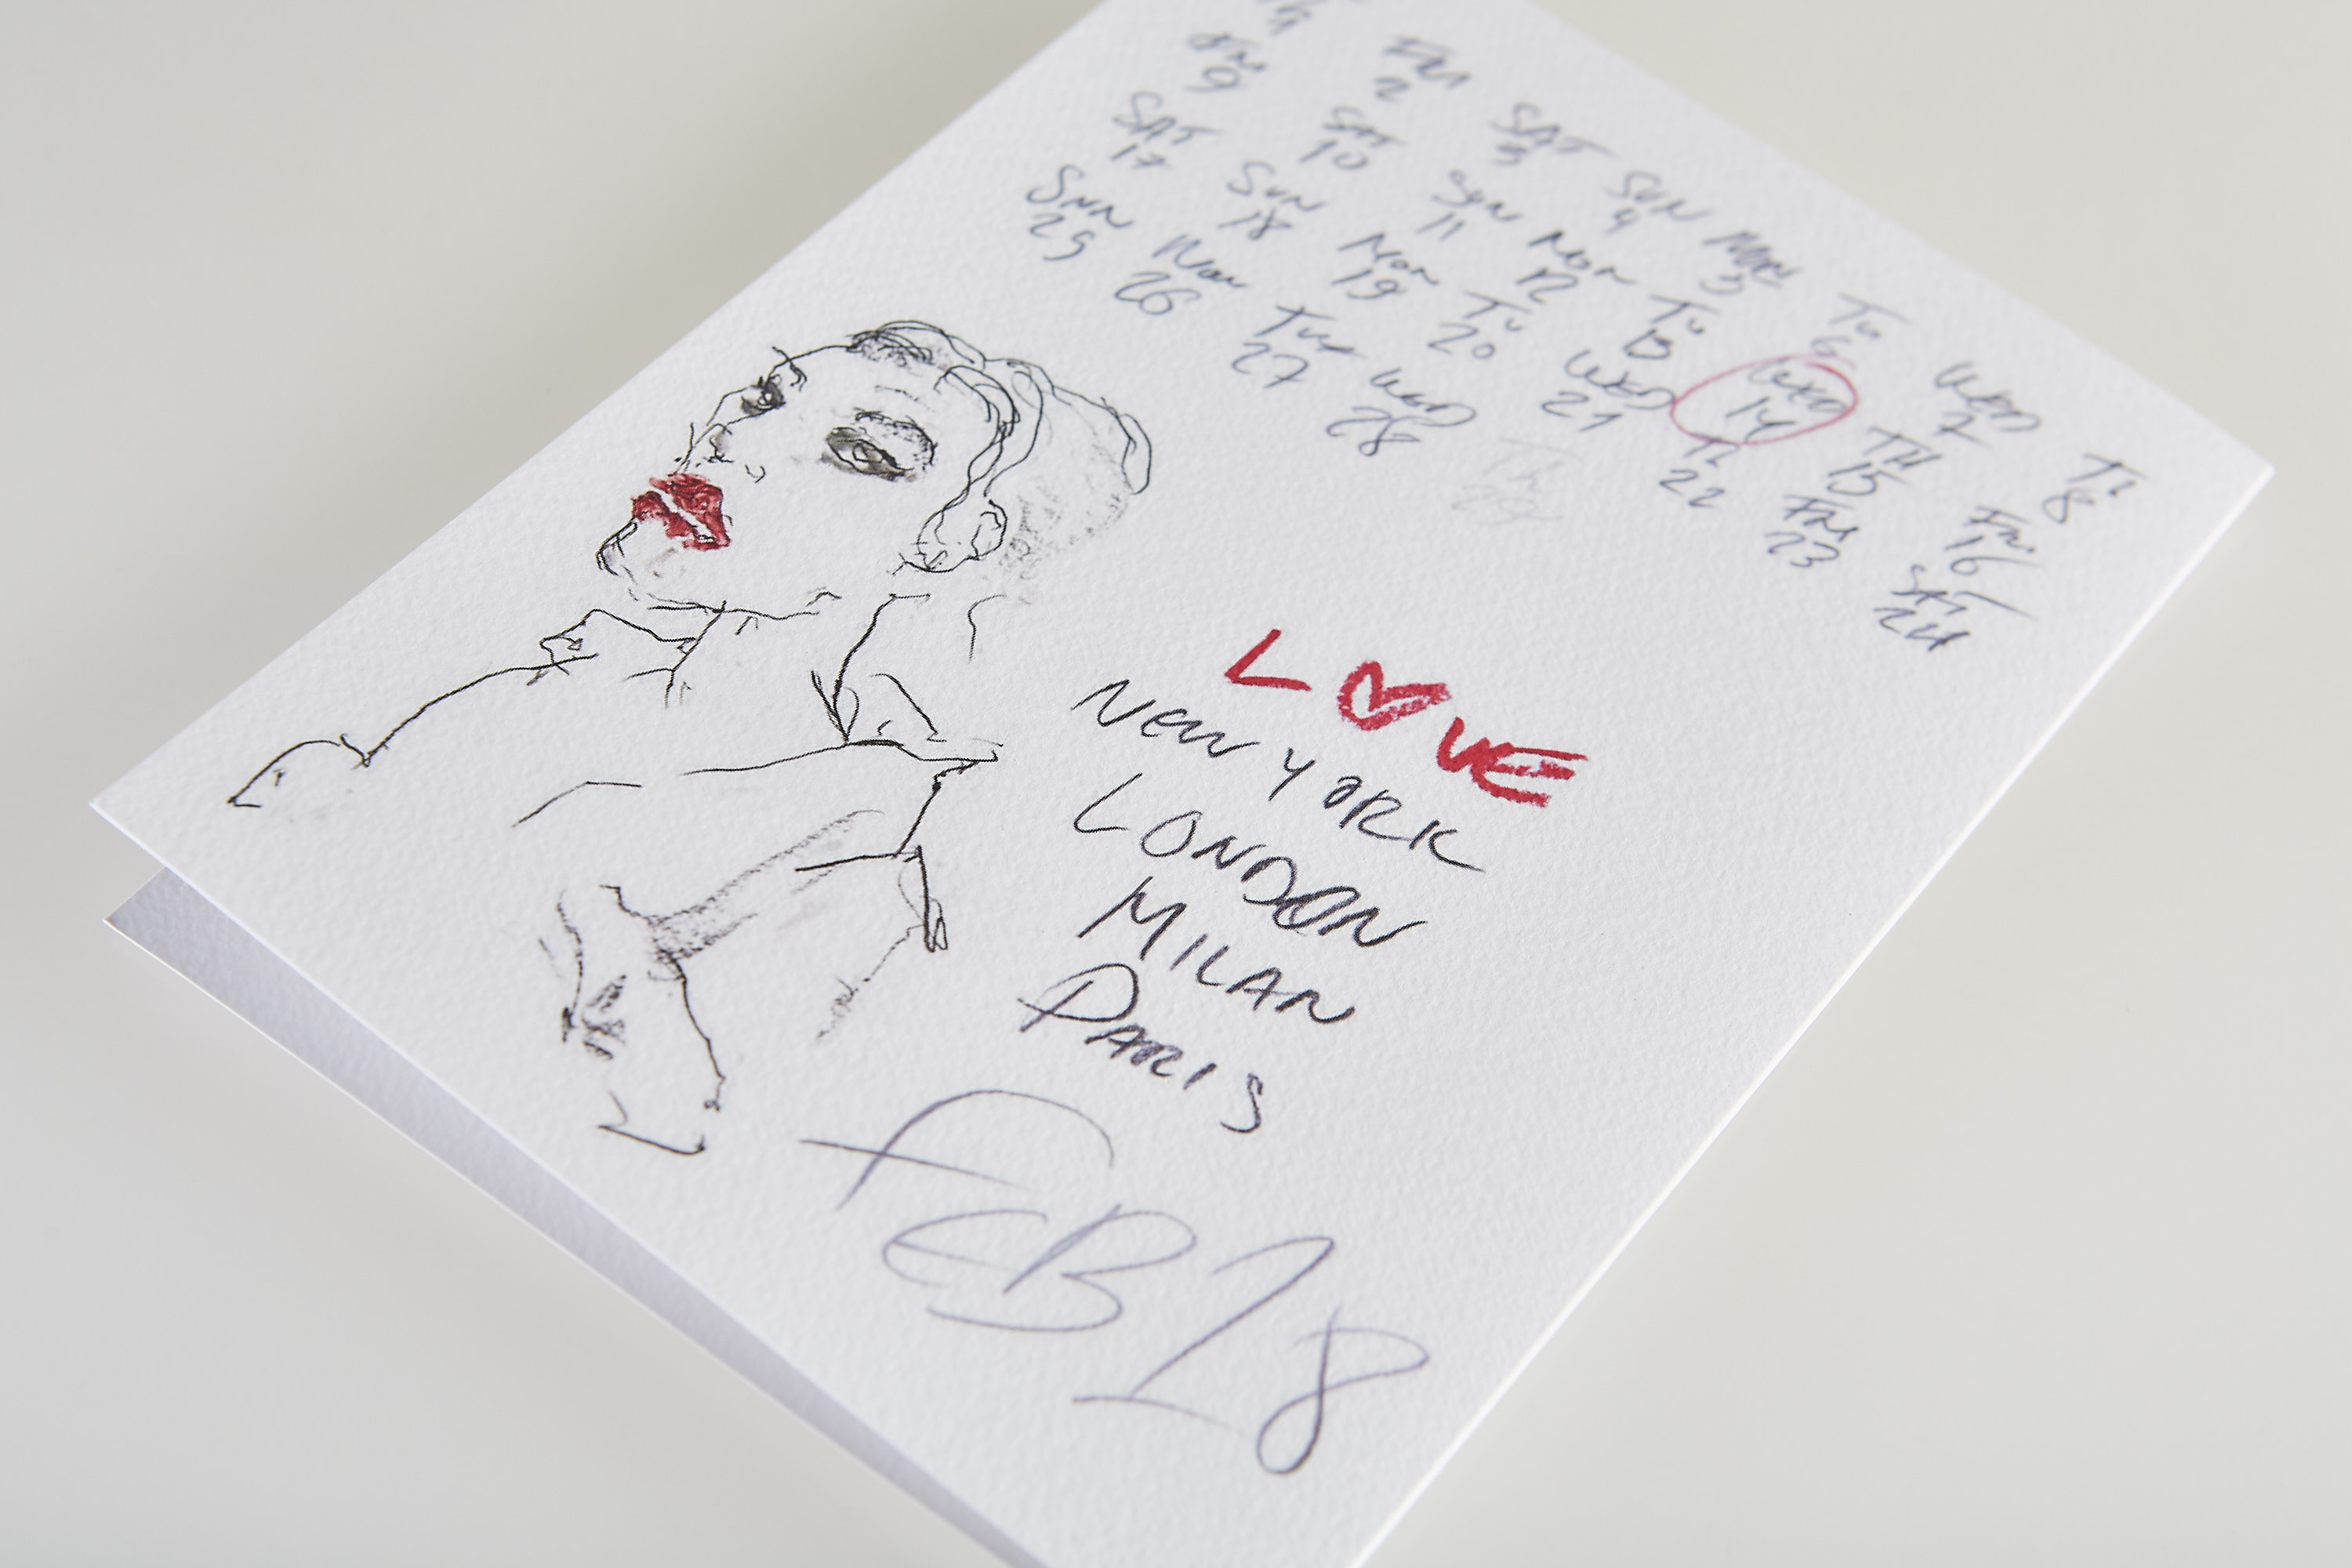 FRI SAT SUN MON TU WED TH
2 3 4 5 6 7 8
FRI SAT SUN MON TU WED TH FRI
9 10 11 12 13 14 15 16
SAT SUN MON TU WED TH FRI SAT
17 18 19 20 21 22 23 24
SUN MON TUE WED TH
25 26 27 28 29
LOVE
NEW YORK
LONDON
MILAN
PARIS
FEB 28